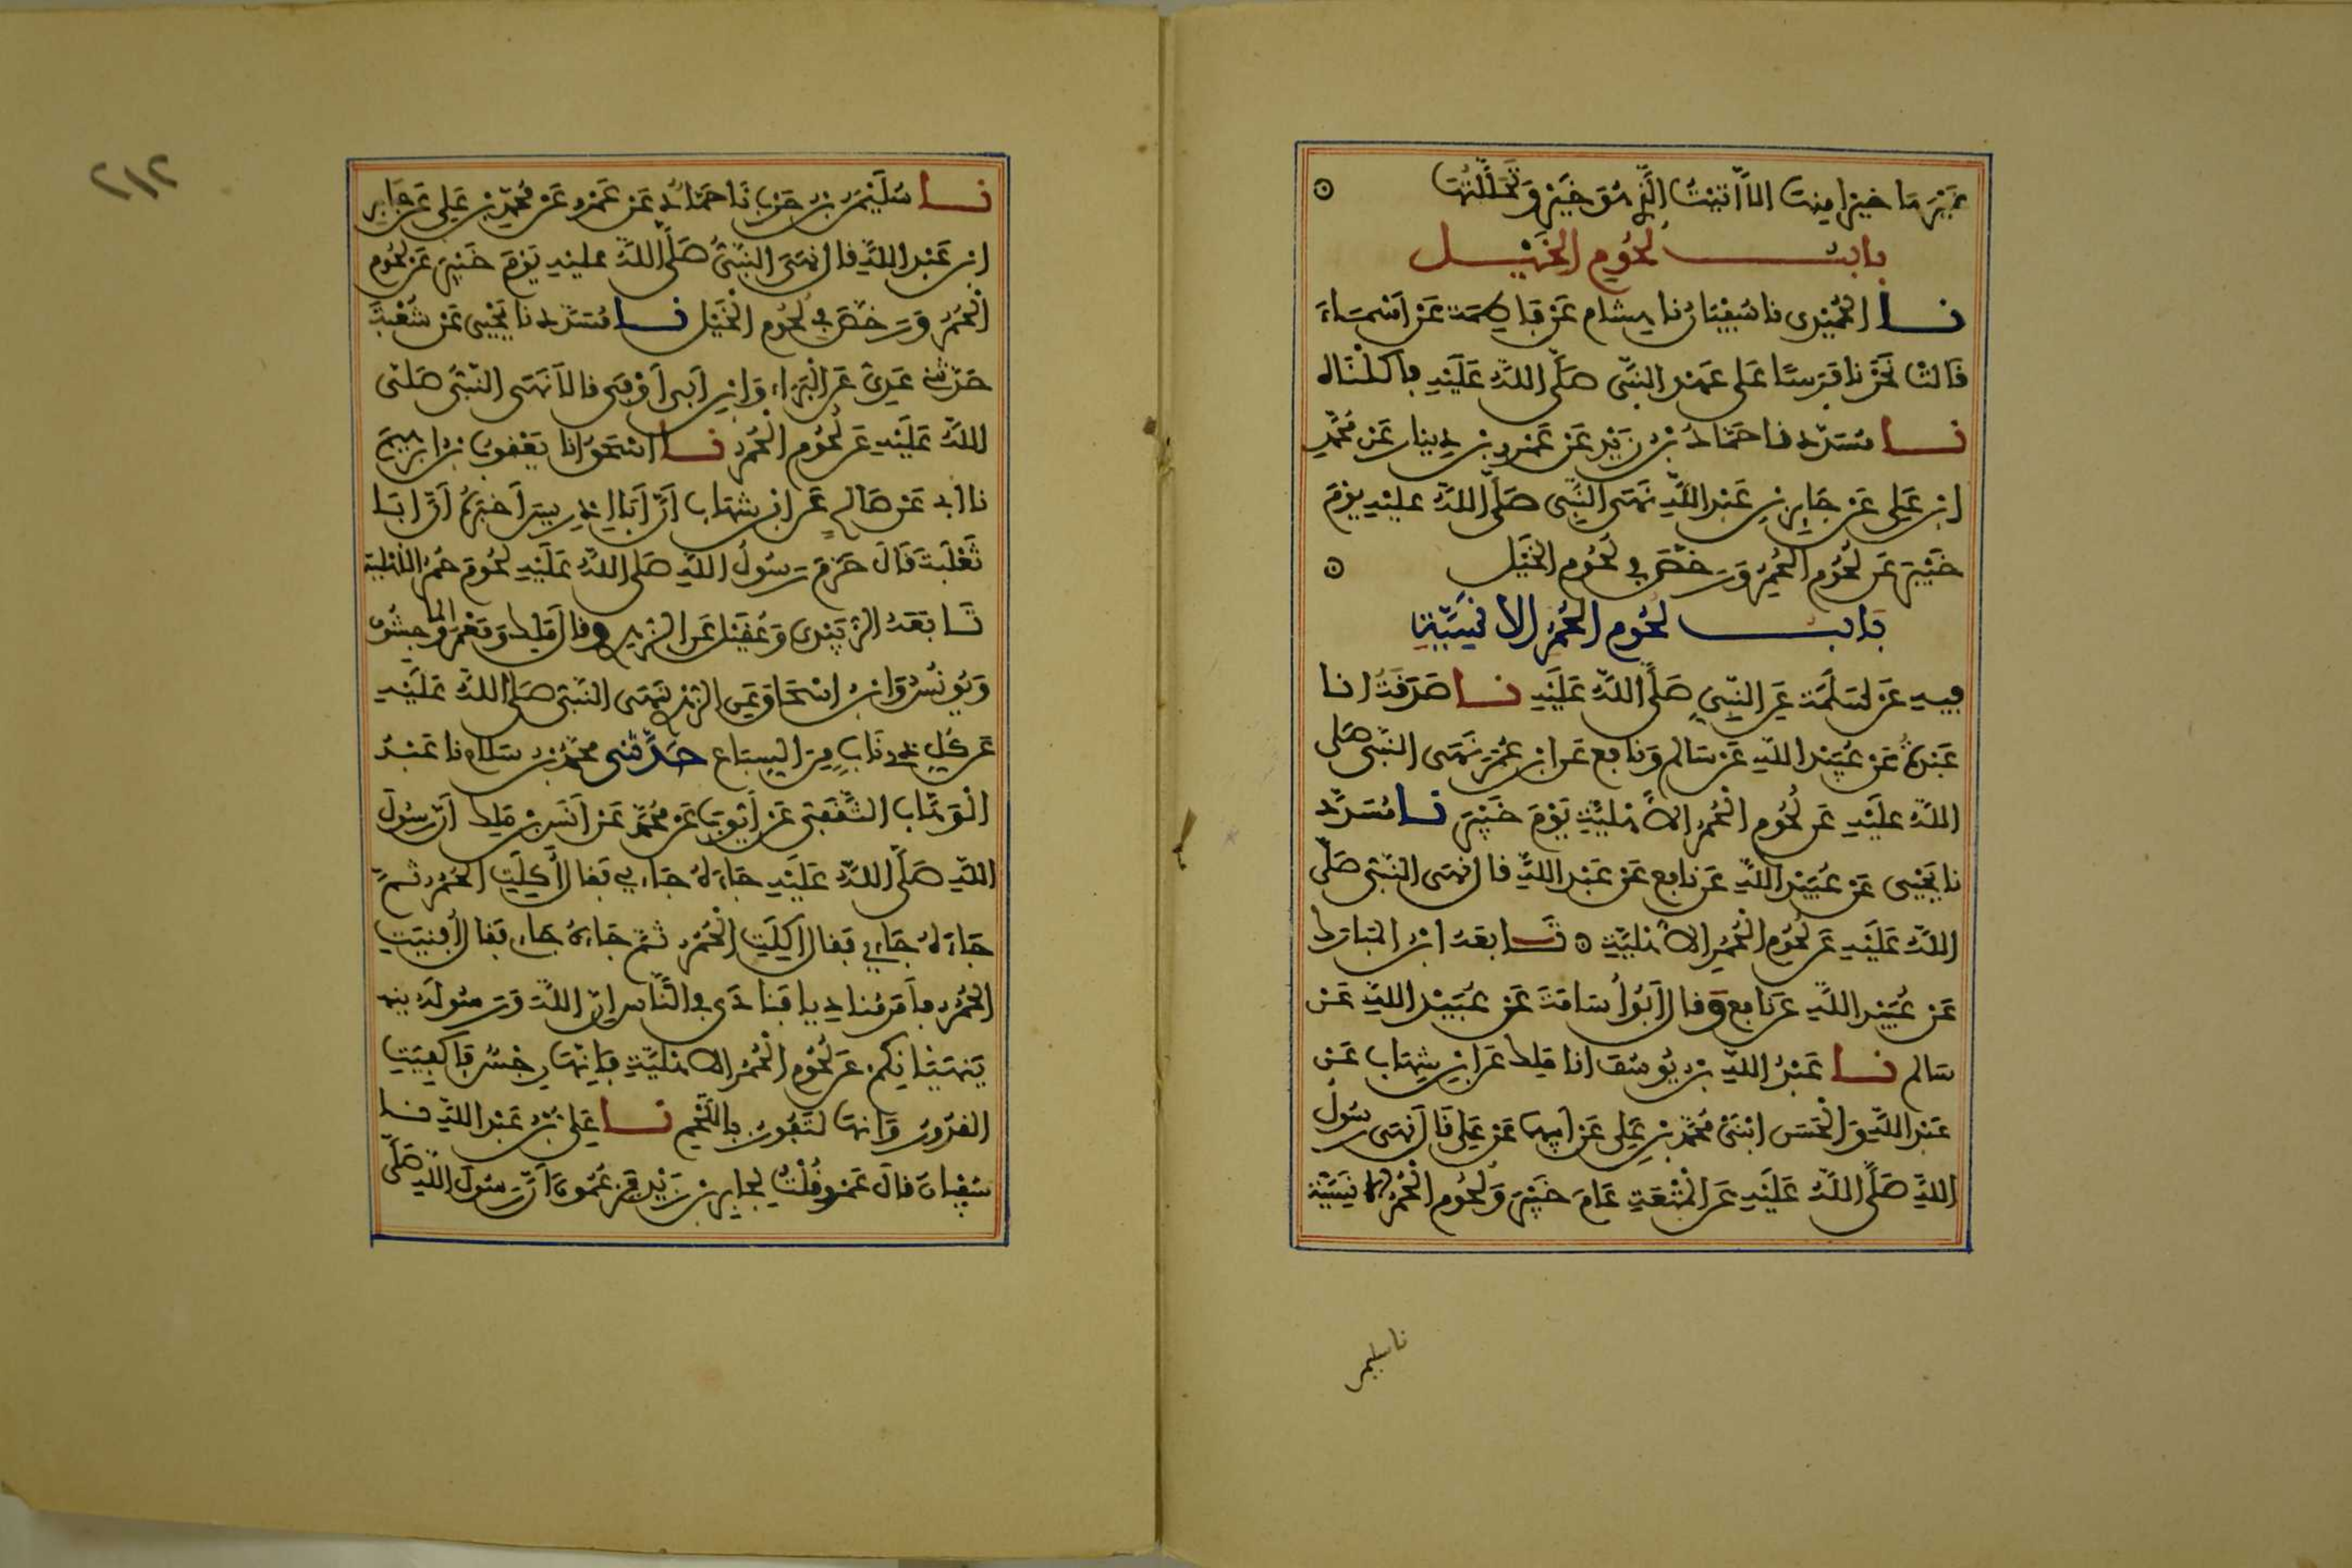 غَيْرَهَا خَيْرا مِنهَا الاَّ اَتَيْتُ الَّذِي هُوَ خَيْرٌ وَتَحَلَّلْتُهَا
بابُ لُحُومِ الخَيْلِ
نا الحُمَيْدِى نا سُفْيَانُ نا هِشام عَنْ فَاطِمَة عَنْ اَسْمَاءَ
قَالَتْ نَحَرْنَا فَرَسًا عَلَى عَهْدِ النَّبِى صَلَّى اللَّهُ عَلَيْهِ فَأَكَلْنَاهُ
نا مُسَدَّد نا حَمَّادُ بْنُ زَيْدٍ عَنْ عَمْرِو بْنِ دِينار عَنْ مُحَمَّدِ
ابْنِ عَلِى عَنْ جَابِرِ بْنِ عَبْدِ اللَّهِ نَهَى النَّبِى صَلَّى اللَّهُ عليْهِ يوْمَ
خَيْبَرَ عَنْ لُحُومِ الحُمُرِ وَرَخَّصَ فِي لُحُومِ الخَيْلِ
بَابُ لُحُومِ الحُمُرِ الاِنْسِيَّةِ
فِيهِ عَنْ سَلَمَة عَنِ النَّبِيِّ صَلَّى اللَّهُ عَلَيْهِ نا صَدَقَةُ انا
عَبْدَةُ عَنْ عُبَيْدِ اللَّهِ عَنْ سَالِمٍ وَنَافِعٍ عَنِ ابْنِ عُمَرَ نَهَى النَّبِىُّ صَلى
اللَّهُ عَلَيْهِ عَن لُحُومِ الْحُمُرِ الاَهْلِيَّةِ يَوْمَ خَيْبَرَ نا مُسَدَّد
نا يَحْيَى عَنْ عُبَيْدِ اللَّهِ عَنْ نَافِعٍ عَنْ عَبْدِ اللَّهِ قَالَ نَهَى النَّبِىُّ صَلَّى
اللَّهُ عَلَيْهِ عَنْ لُحُومِ الْحُمُرِ الاَهْلِيَّةِ تَابَعَهُ ابْنُ المُبَارَكِ
عَنْ عُبَيْدِ اللَّهِ عَنْ نَافِعٍ وَقَالَ اَبُو أُسَامَةَ عَنْ عُبَيْدِ اللَّهِ عَنْ
سَالم نا عَبْدُ اللَّهِ بْنُ يُوسُفَ انا مَلِك عَنِ ابْنِ شِهَابٍ عَنْ
عَبْدِ اللَّهِ وَالْحَسَنِ ابْنَىْ مُحَمَّدِ بْنِ عَلِى عَنْ اَبِيهِمَا عَنْ عَلِى قَالَ نَهَى رَسُولُ
اللَّهِ صَلَّى اللَّهُ عَلَيْهِ عَنِ الْمُتْعَةِ عَامَ خَيْبَرَ وَلُحُومِ الْحُمُرِ الاِنْسِيَّةِ
نا سليمن
٢١٢
نا سُلَيْمَنُ بْنُ حَرْبٍ نَا حَمَّادٌ عَنْ عَمْرٍو عَنْ مُحَمَّدِ بْنِ عَلِى عَنْ جَابِرِ
ابْنِ عَبْدِ اللَّهِ قَالَ نَهَى النَّبِىُّ صَلَّى اللَّهُ عليْهِ يَوْمَ خَيْبَرَ عَنْ لُحُومِ
الْحُمُرِ وَرَخَّصَ فِي لُحُومِ الْخَيْلِ نا مُسَدَّد نا يَحْيَى عَنْ شُعْبَةَ
حَدَّثَنِي عَدِيٌّ عَنِ الْبَرَاءِ وَابْنِ اَبِى اَوْفَى قَالاَ نَهَى النَّبِىُّ صَلَّى
اللَّهُ عَلَيْهِ عَنْ لُحُومِ الْحُمُرِ نا اسْحَقُ انا يَعْقُوبُ بْنُ ابْرَهِيمَ
نا ابِى عَنْ صَالحٍ عَنِ ابْنِ شِهَابٍ اَنَّ اَبَا اِدْرِيسَ اَخْبَرَهُ اَنَّ اَبَا
ثَعْلَبَةَ قَالَ حَرَّمَ رَسُولُ اللَّهِ صَلَّى اللَّهُ عَلَيْهِ لُحُومَ حُمُرِ الاَهْلِيَّة
تَابَعَهُ الزُّبَيْدِى وَعُقَيْلٌ عَنِ الزُّهْرِيّ وَقَالَ مَلِك وَمَعْمَر وَالماجِشُون
وَيُونُسُ وَابْنُ اسْحَاقَ عَنِ الزُّهْرِيّ نَهَى النَّبِىُّ صَلى اللَّهُ عَلَيْهِ
عَنْ كُلِّ ذِي نَابٍ مِنَ السِّبَاعِ حَدَّثَنِي مُحَمَّدُ بْنُ سَلَامٍ نا عَبْدُ
الْوَهَّابِ الثَّقَفِىُّ عَنْ اَيُّوبَ عَنْ مُحَمَّدٍ عَنْ اَنَسِ بْنِ مَلِك اَنَّ رَسُولَ
اللَّهِ صَلَّى اللَّهُ عَلَيْهِ جَاءَهُ جَاءٍ فَقَالَ أُكِلَتِ الْحُمُرُ ثُمَّ
جَاءَهُ جَاءٍ فَقَالَ اُكِلَتِ الْحُمُرُ ثُمَّ جَاءَهُ جَاءٍ فَقَالَ أُفْنِيَتِ
الْحُمُرُ فَأَمَرَ مُنَادِيا فَنَادَى فِي النَّاسِ اِنَّ اللَّهَ وَرَسُولَهُ يَنْهـ
يَنْهَيَانِكُمْ عَنْ لُحُومِ الْحُمُرِ الاَهْلِيَّةِ فَإِنَّهَا رِجْسٌ فَأُكْفِيَتِ
القُدُورُ وَاِنَّهَا لَتَفُورُ بِاللَّحْمِ نا عَلِىُّ بْنُ عَبْدِ اللَّهِ نا
سُفْيَانُ قَالَ عَمْرٌو قُلْتُ لِجَابِرِ بْنِ زَيْدٍ يَزْعُمُونَ اَنَّ رَسُولَ اللَّهِ صَلَّى